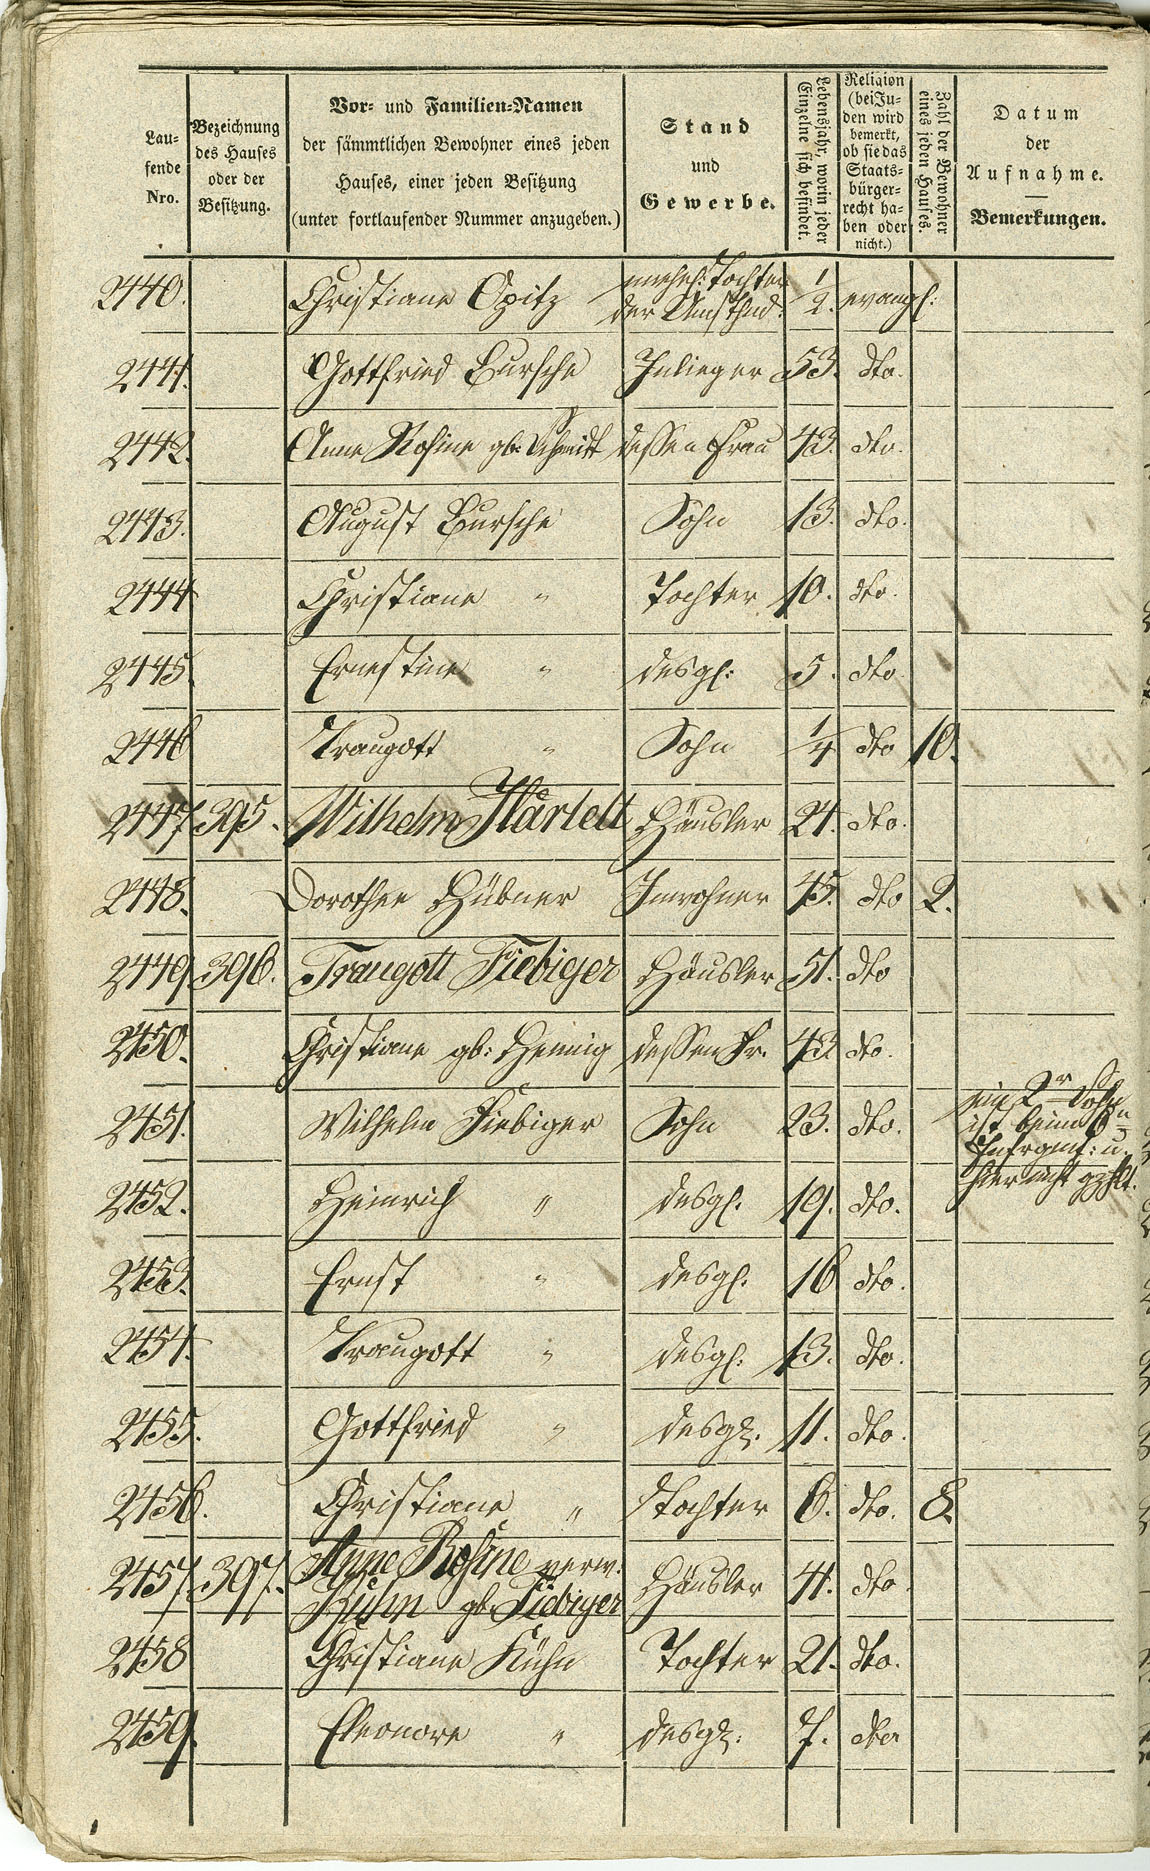 Lau-
fende
Nro.
Bezeichnung
des Hauses
oder der
Besitzung.
Vor- und Familien-Namen
der sämmtlichen Bewohner eines jeden
Hauses, einer jeden Besitzung
(unter fortlaufender Nummer anzugeben.)
Stand
und
Gewerbe.
Lebensjahr, worin jeder
Einzelne sich befindet.
Religion
(bei Ju-
den wird
bemerkt,
ob sie das
Staats-
bürger-
recht ha-
ben oder
nicht.)
Zahl der Bewohner
eines jeden Hauses.
Datum
der
Aufnahme.
Bemerkungen.
2440. Christiane Opitz unehel: Tochter der 1/2. evangl:
2441. Gottfried Bursche Inlieger 53. dto.
2442. Anne Rosine gb: Schmidt dessen Frau 43. dto.
2443. August Bursche Sohn 13. dto.
2444 Christiane " Tochter 10. dto.
2445. Ernestine " desgl: 5. dto
2446 Traugott " Sohn 1/4 dto 10.
2447 395. Wilhelm Härtelt Häusler 24. dto.
2448. Dorothee Hübner Inwohner 45. dto 2.
2449 396. Traugott Fiebiger Häusler 51. dto
2450. Christiane gb: Hennig dessen Fr. 43 dto.
2451. Wilhelm Fiebiger Sohn 23. dto.
ein 2r Sohn
ist beim 6n
Inf. u.
hier nicht gezhlt.
2452. Heinrich " desgl. 19. dto.
2453. Ernst " desgl. 16 dto.
2454. Traugott " desgl. 13. dto.
2455. Gottfried " desgl. 11. dto.
2456. Christiane " Tochter 6. dto. 8.
2457 397. Anne Rosine verw:
Kühn gb. Fiebiger Häusler 41. dto.
2458 Christiane Kühn Tochter 21. dto.
2459. Eleonore " desgl: 7. dto